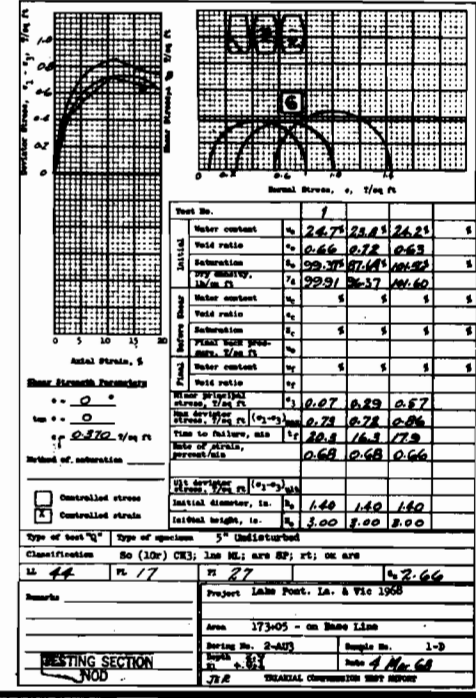 Deviator Stress, σ1 - σ3, T/sq ft
1.0
0.8
0.6
0.4
0.2
0
0 5 10 15 20
Axial Strain, %
Shear Stress, T/sq ft
6
0 0.2 0.6 1.0 1.4
Normal Stress, σ, T/sq ft
Test No. 1
Initial
Water content w0 24.7% 23.8% 24.2% %
Void ratio e0 0.66 0.72 0.63
Saturation S0 99.37% 87.68% %
Dry density, lb/cu ft γd 99.91 96.37 101.60
Before Shear
Water content wc % % % %
Void ratio ec
Saturation Sc % % % %
Final back pressure, T/sq ft u0
Final
Water content wf % % % %
Void ratio ef
Minor principal stress, T/sq ft σ3 0.07 0.29 0.57
Max deviator stress, T/sq ft (σ1-σ3)max 0.73 0.72 0.86
Time to failure, min tf 20.3 16.3 17.9
Rate of strain, percent/min 0.68 0.68 0.66
Ult deviator stress, T/sq ft (σ1-σ3)ult
Initial diameter, in. D0 1.40 1.40 1.40
Initial height, in. H0 3.00 3.00 3.00
Shear Strength Parameters
φ = 0 °
tan φ = 0
c = 0.370 T/sq ft
Method of saturation
Controlled stress
X Controlled strain
Type of test "Q" Type of specimen 5" Undisturbed
Classification So (10r) CH3; lns ML; ars SP; rt; ox ars
LL 44 PL 17 PI 27 Gs 2.66
Remarks
Project Lake Pont. La. & Vic 1968
Area 173+05 - on Base Line
Boring No. 2-AU3 Sample No. 1-D
Depth
El
Date 4 Mar 68
TESTING SECTION
NOD
JER TRIAXIAL COMPRESSION TEST REPORT